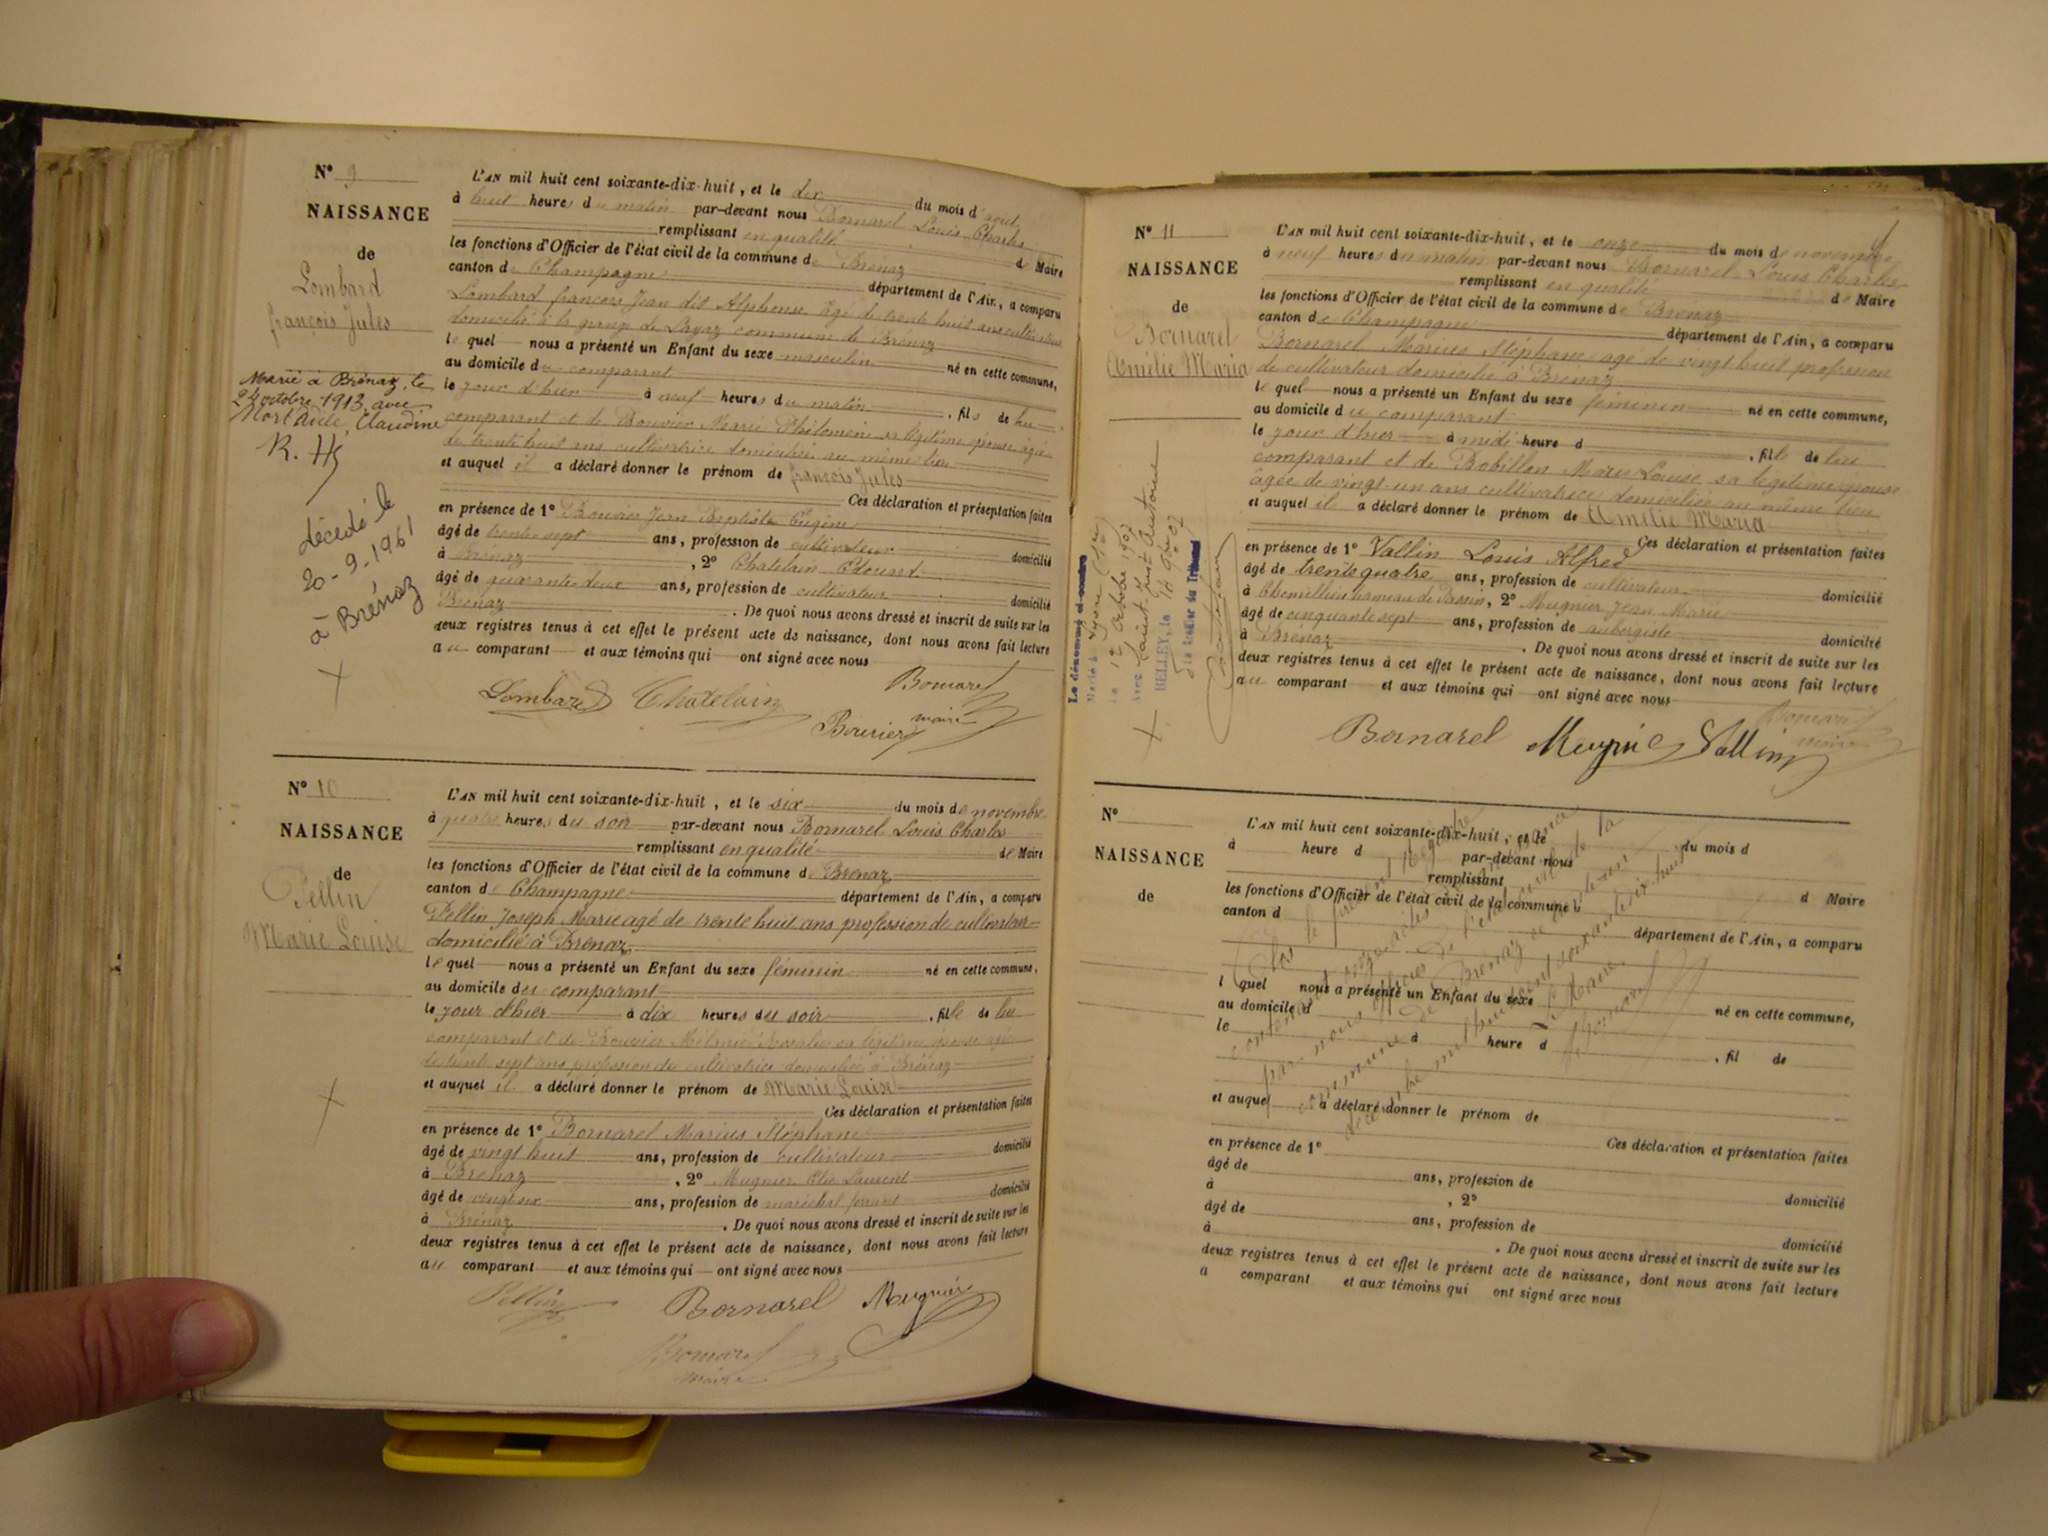 N° 9
NAISSANCE
de
Lombard
françois Jules
Marié à Brénaz, le
24 octobre 1913 avec
Claudine
décédé le
20-9-1961
à Brénaz
L'AN mil huit cent soixante-dix-huit, et le dix du mois d'août
à huit heures du matin par-devant nous Bornarel Louis Charles
remplissant en qualité de Maire
les fonctions d'Officier de l'état civil de la commune de Brénaz
canton de Champagne département de l'Ain, a comparu
Lombard françois Jean dit Alphonse âgé de trente huit ans cultivateur
domicilié à la grange de commune de Brénaz
le quel nous a présenté un Enfant du sexe masculin né en cette commune,
au domicile du comparant
le jour d'hier à neuf heures du matin, fils de lui
comparant et de Bouvier Marie Philomène sa légitime épouse âgée
de trente huit ans cultivatrice domiciliée au même lieu
et auquel il a déclaré donner le prénom de françois Jules
Ces déclaration et présentation faites
en présence de 1° Bouvier Jean Baptiste Eugène
âgé de trente sept ans, profession de cultivateur domicilié
à Brénaz, 2° Chatelain Edouard
âgé de quarante deux ans, profession de cultivateur domicilié
Brénaz. De quoi nous avons dressé et inscrit de suite sur les
deux registres tenus à cet effet le présent acte de naissance, dont nous avons fait lecture
au comparant et aux témoins qui ont signé avec nous
Lombard Chatelain Bornarel
Bouvier maire
N° 10
NAISSANCE
de
Pellin
Marie Louise
L'AN mil huit cent soixante-dix-huit, et le six du mois de novembre
à quatre heures du soir par-devant nous Bornarel Louis Charles
remplissant en qualité de Maire
les fonctions d'Officier de l'état civil de la commune de Brénaz
canton de Champagne département de l'Ain, a comparu
Pellin Joseph Marie agé de trente huit ans profession de cultivateur
domicilié à Brénaz
le quel nous a présenté un Enfant du sexe féminin né en cette commune,
au domicile du comparant
le jour d'hier à dix heures du soir, fille de lui
comparant et de Bouvier Mélanie Rosalie sa légitime épouse agée
de trente sept ans profession de cultivatrice domiciliée à Brénaz
et auquel il a déclaré donner le prénom de Marie Louise
Ces déclaration et présentation faites
en présence de 1° Bornarel Marius Stéphane
âgé de vingt huit ans, profession de cultivateur domicilié
à Brénaz, 2° Mugnier Laurent
âgé de ans, profession de maréchal ferrant domicilié
à Brénaz. De quoi nous avons dressé et inscrit de suite sur les
deux registres tenus à cet effet le présent acte de naissance, dont nous avons fait lecture
au comparant et aux témoins qui ont signé avec nous
Pellin Bornarel Mugnier
Bornarel
maire
N° 11
NAISSANCE
de
Bornarel
Emélie Maria
BELLEY, le
L'AN mil huit cent soixante-dix-huit, et le onze du mois de novembre
à neuf heures du matin par-devant nous Bornarel Louis Charles
remplissant en qualité de Maire
les fonctions d'Officier de l'état civil de la commune de Brénaz
canton de Champagne département de l'Ain, a comparu
Bornarel Marius Stéphane agé de vingt huit profession
de cultivateur domicilié à Brénaz
le quel nous a présenté un Enfant du sexe féminin né en cette commune,
au domicile du comparant
le jour d'hier à midi heure d, fille de lui
comparant et de Bobillon Marie Louise sa légitime épouse
âgée de vingt-un ans cultivatrice domiciliée au même lieu
et auquel il a déclaré donner le prénom de Emélie Maria
Ces déclaration et présentation faites
en présence de 1° Vallin Louis Alfred
âgé de trente quatre ans, profession de cultivateur domicilié
à Chemillieu hameau de Passin, 2° Mugnier Jean Marie
âgé de cinquante sept ans, profession de aubergiste domicilié
à Brénaz. De quoi nous avons dressé et inscrit de suite sur les
deux registres tenus à cet effet le présent acte de naissance, dont nous avons fait lecture
au comparant et aux témoins qui ont signé avec nous
Bornarel Mugnier Vallin Bornarel
maire
N°
NAISSANCE
de
L'AN mil huit cent soixante-dix-huit, et le du mois d
à heure d par-devant nous
remplissant d Maire
les fonctions d'Officier de l'état civil de la commune
canton d département de l'Ain, a comparu
l quel nous a présenté un Enfant du sexe né en cette commune,
au domicile d
le à heure d, fil de
et auquel a déclaré donner le prénom de
Ces déclaration et présentation faites
en présence de 1°
âgé de ans, profession de domicilié
à, 2°
âgé de ans, profession de domicilié
à. De quoi nous avons dressé et inscrit de suite sur les
deux registres tenus à cet effet le présent acte de naissance, dont nous avons fait lecture
a comparant et aux témoins qui ont signé avec nous
Clos le présent Registre
contenant onze actes de naissance
par nous officier de l'état civil de la
commune de Brénaz
décembre mil huit cent soixante dix huit
Le Maire
Bornarel